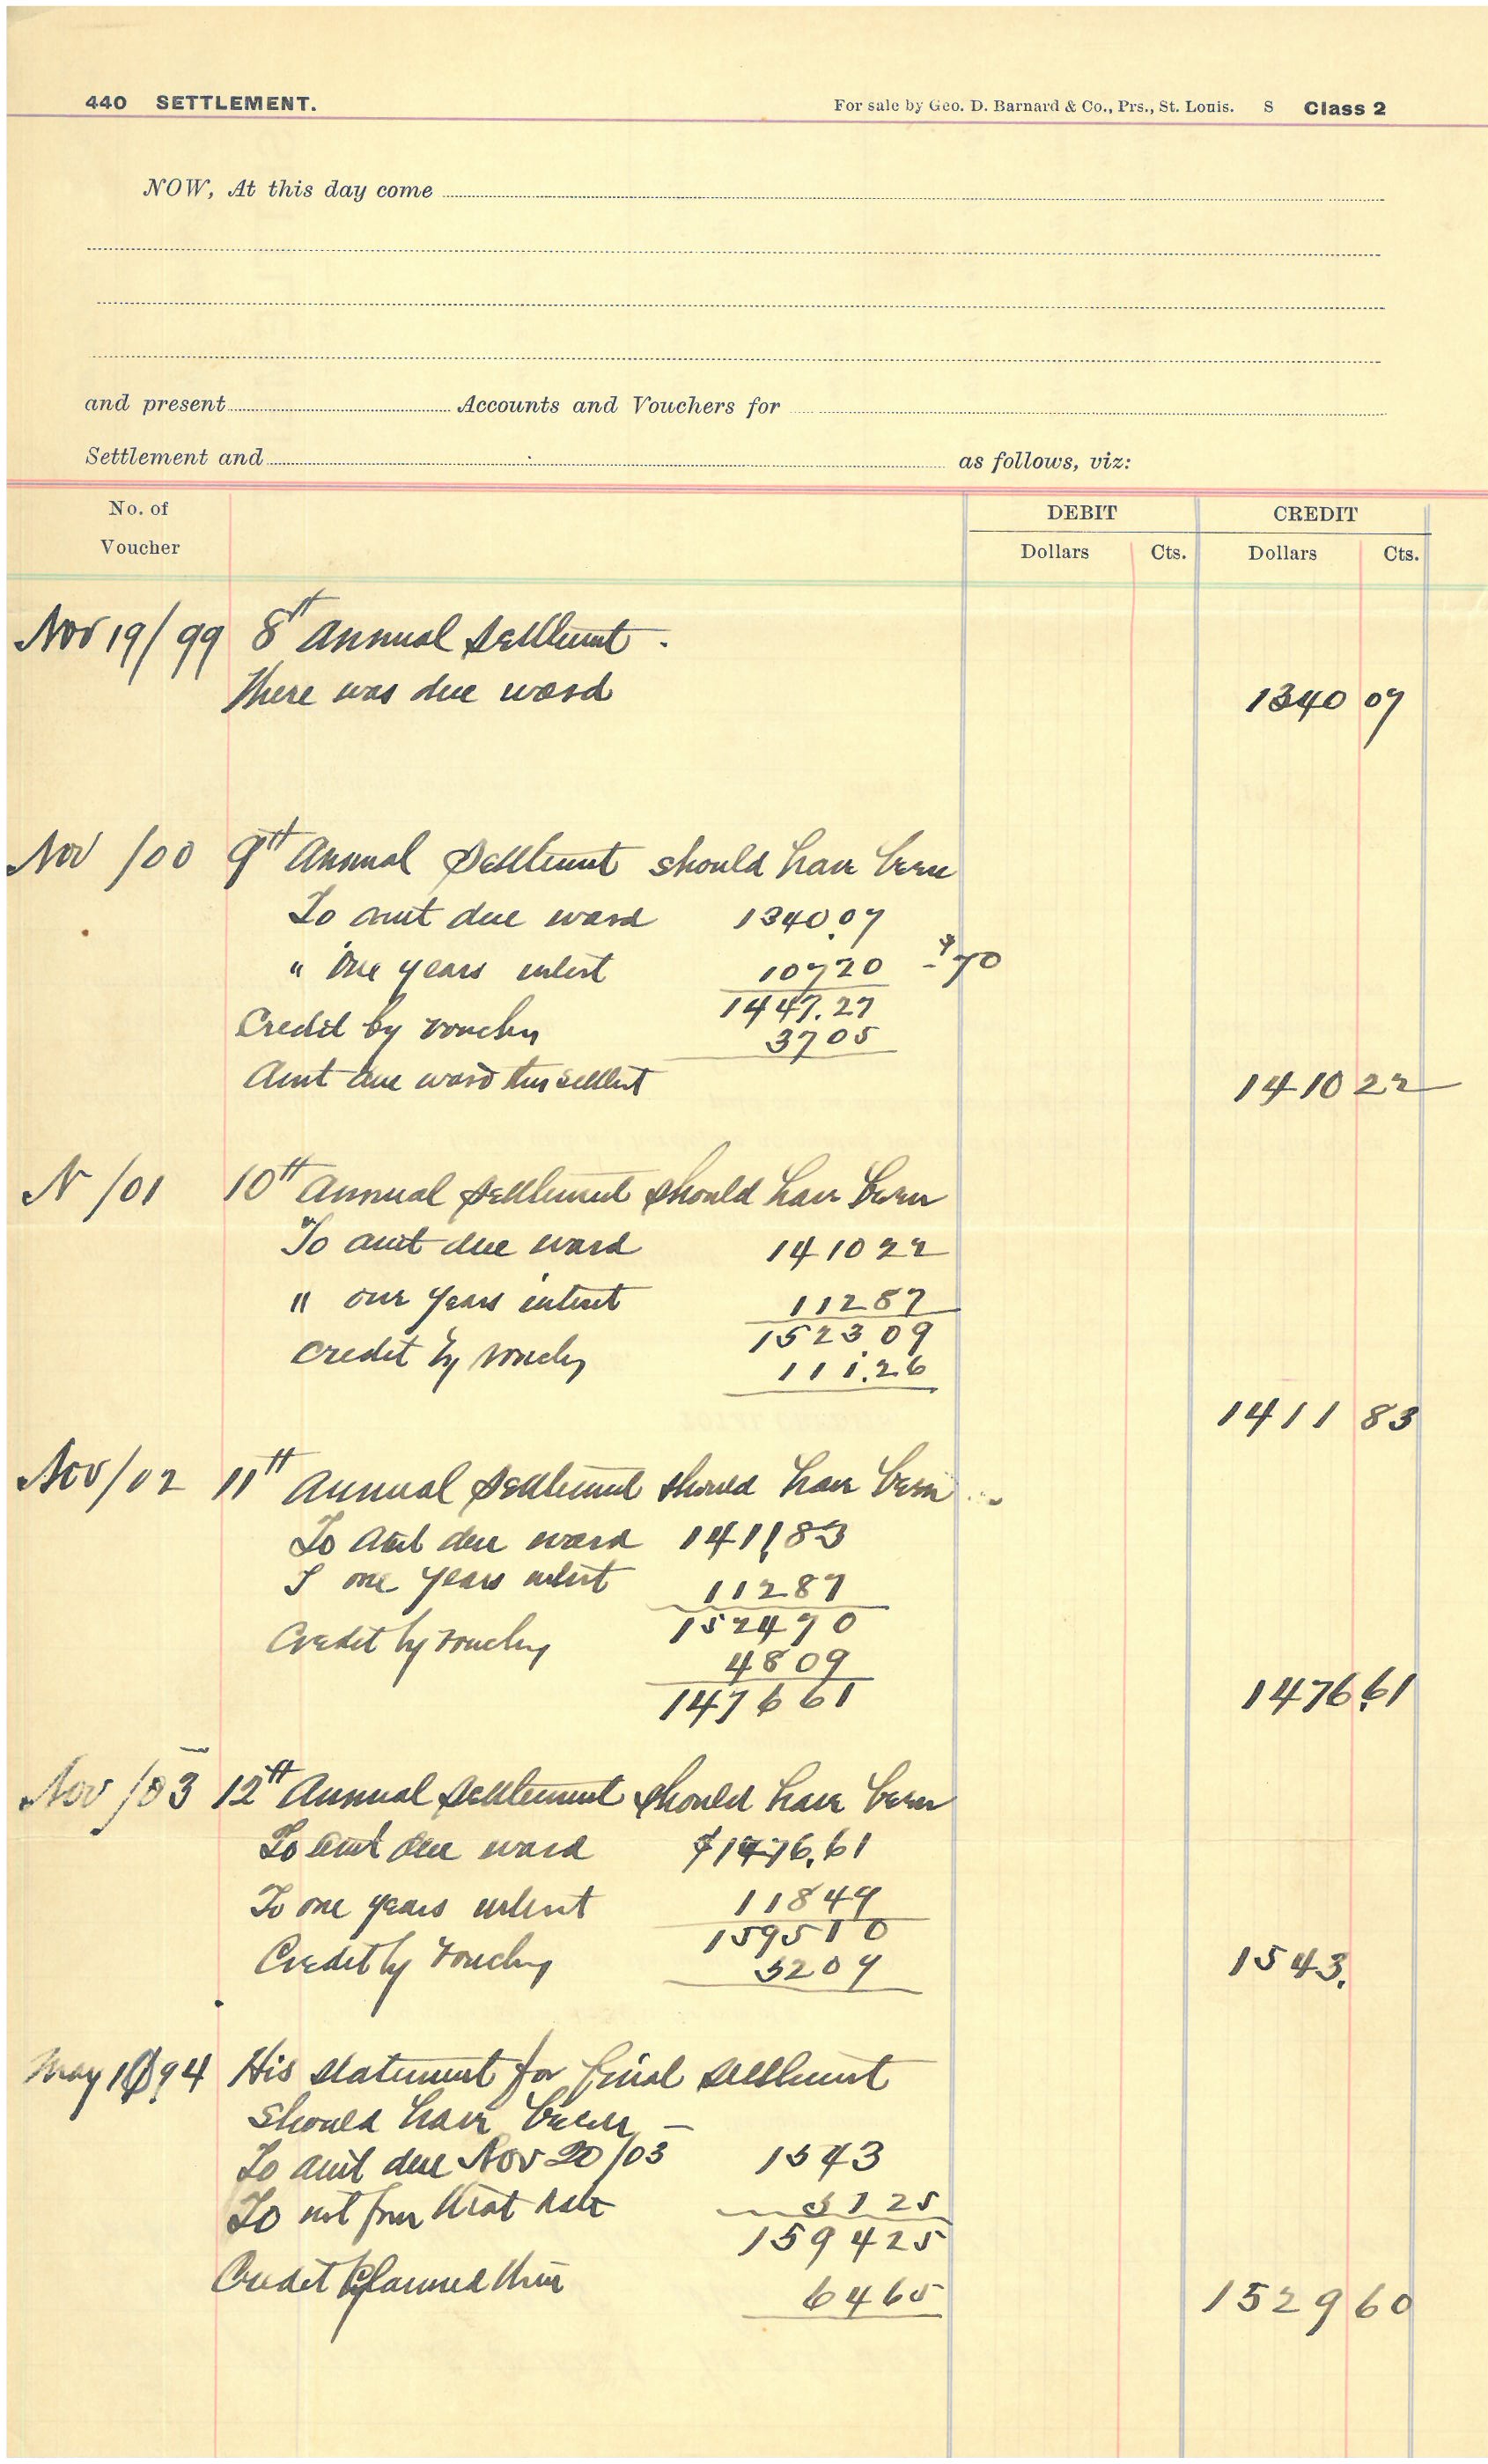 440 SETTLEMENT. For sale by Geo. D. Barnard & Co., Prs., St. Louis. S Class 2
NOW, At this day come
and present Accounts and Vouchers for
Settlement and as follows, viz:
No. of Voucher DEBIT CREDIT
Dollars Cts. Dollars Cts.
Nov 19/99 8th Annual Settlemt.
There was due ward 1340 07
Nov /00 9th Annual Settlemt should have been
To amt due ward 1340.07
" One years interst 10720 70
1447.27
Credit by vouchers 3705
Amt due ward this settlemt 1410 22
N /01 10th Annual Settlement should have been
To amt due ward 141022
" one years interst 11287
152309
Credit by vouchers 111.26
1411 83
Nov/02 11th Annual Settlement should have been
To amt due ward 1411.83
T one years interst 11287
152470
Credit by vouchers 4809
147661 1476.61
Nov /03 12th Annual Settlement should have been
To amt due ward $1476.61
To one years interst 11849
159510
Credit by vouchers 5209 1543.
May 94 His statement for final settlemt
should have been —
To amt due Nov 20/03 1543
To int from that date 5125
159425
Credit 6465 1529 60